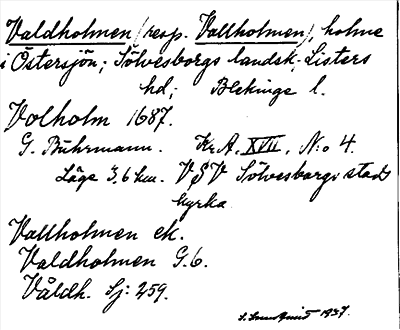 Valdholmen (resp. Vallholmen), holme
i Östersjön; Sölvesborgs landsk. Listers
hd; Blekinge l.
Volholm 1687.
G. Buhrmann. Kr. A. XVII. N:o 4.
Läge 3,6 km. VSV Sölvesborgs stads
kyrka
Vallholmen ek.
Valdholmen G.6.
Våldh. Sj: 259.
1937.